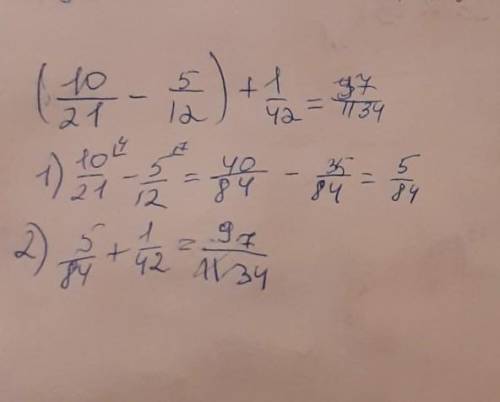 (10/21 - 5/12) + 1/42 = 97/1134
1) 10/21 - 5/12 = 40/84 - 35/84 = 5/84
2) 5/84 + 1/42 = 97/1134